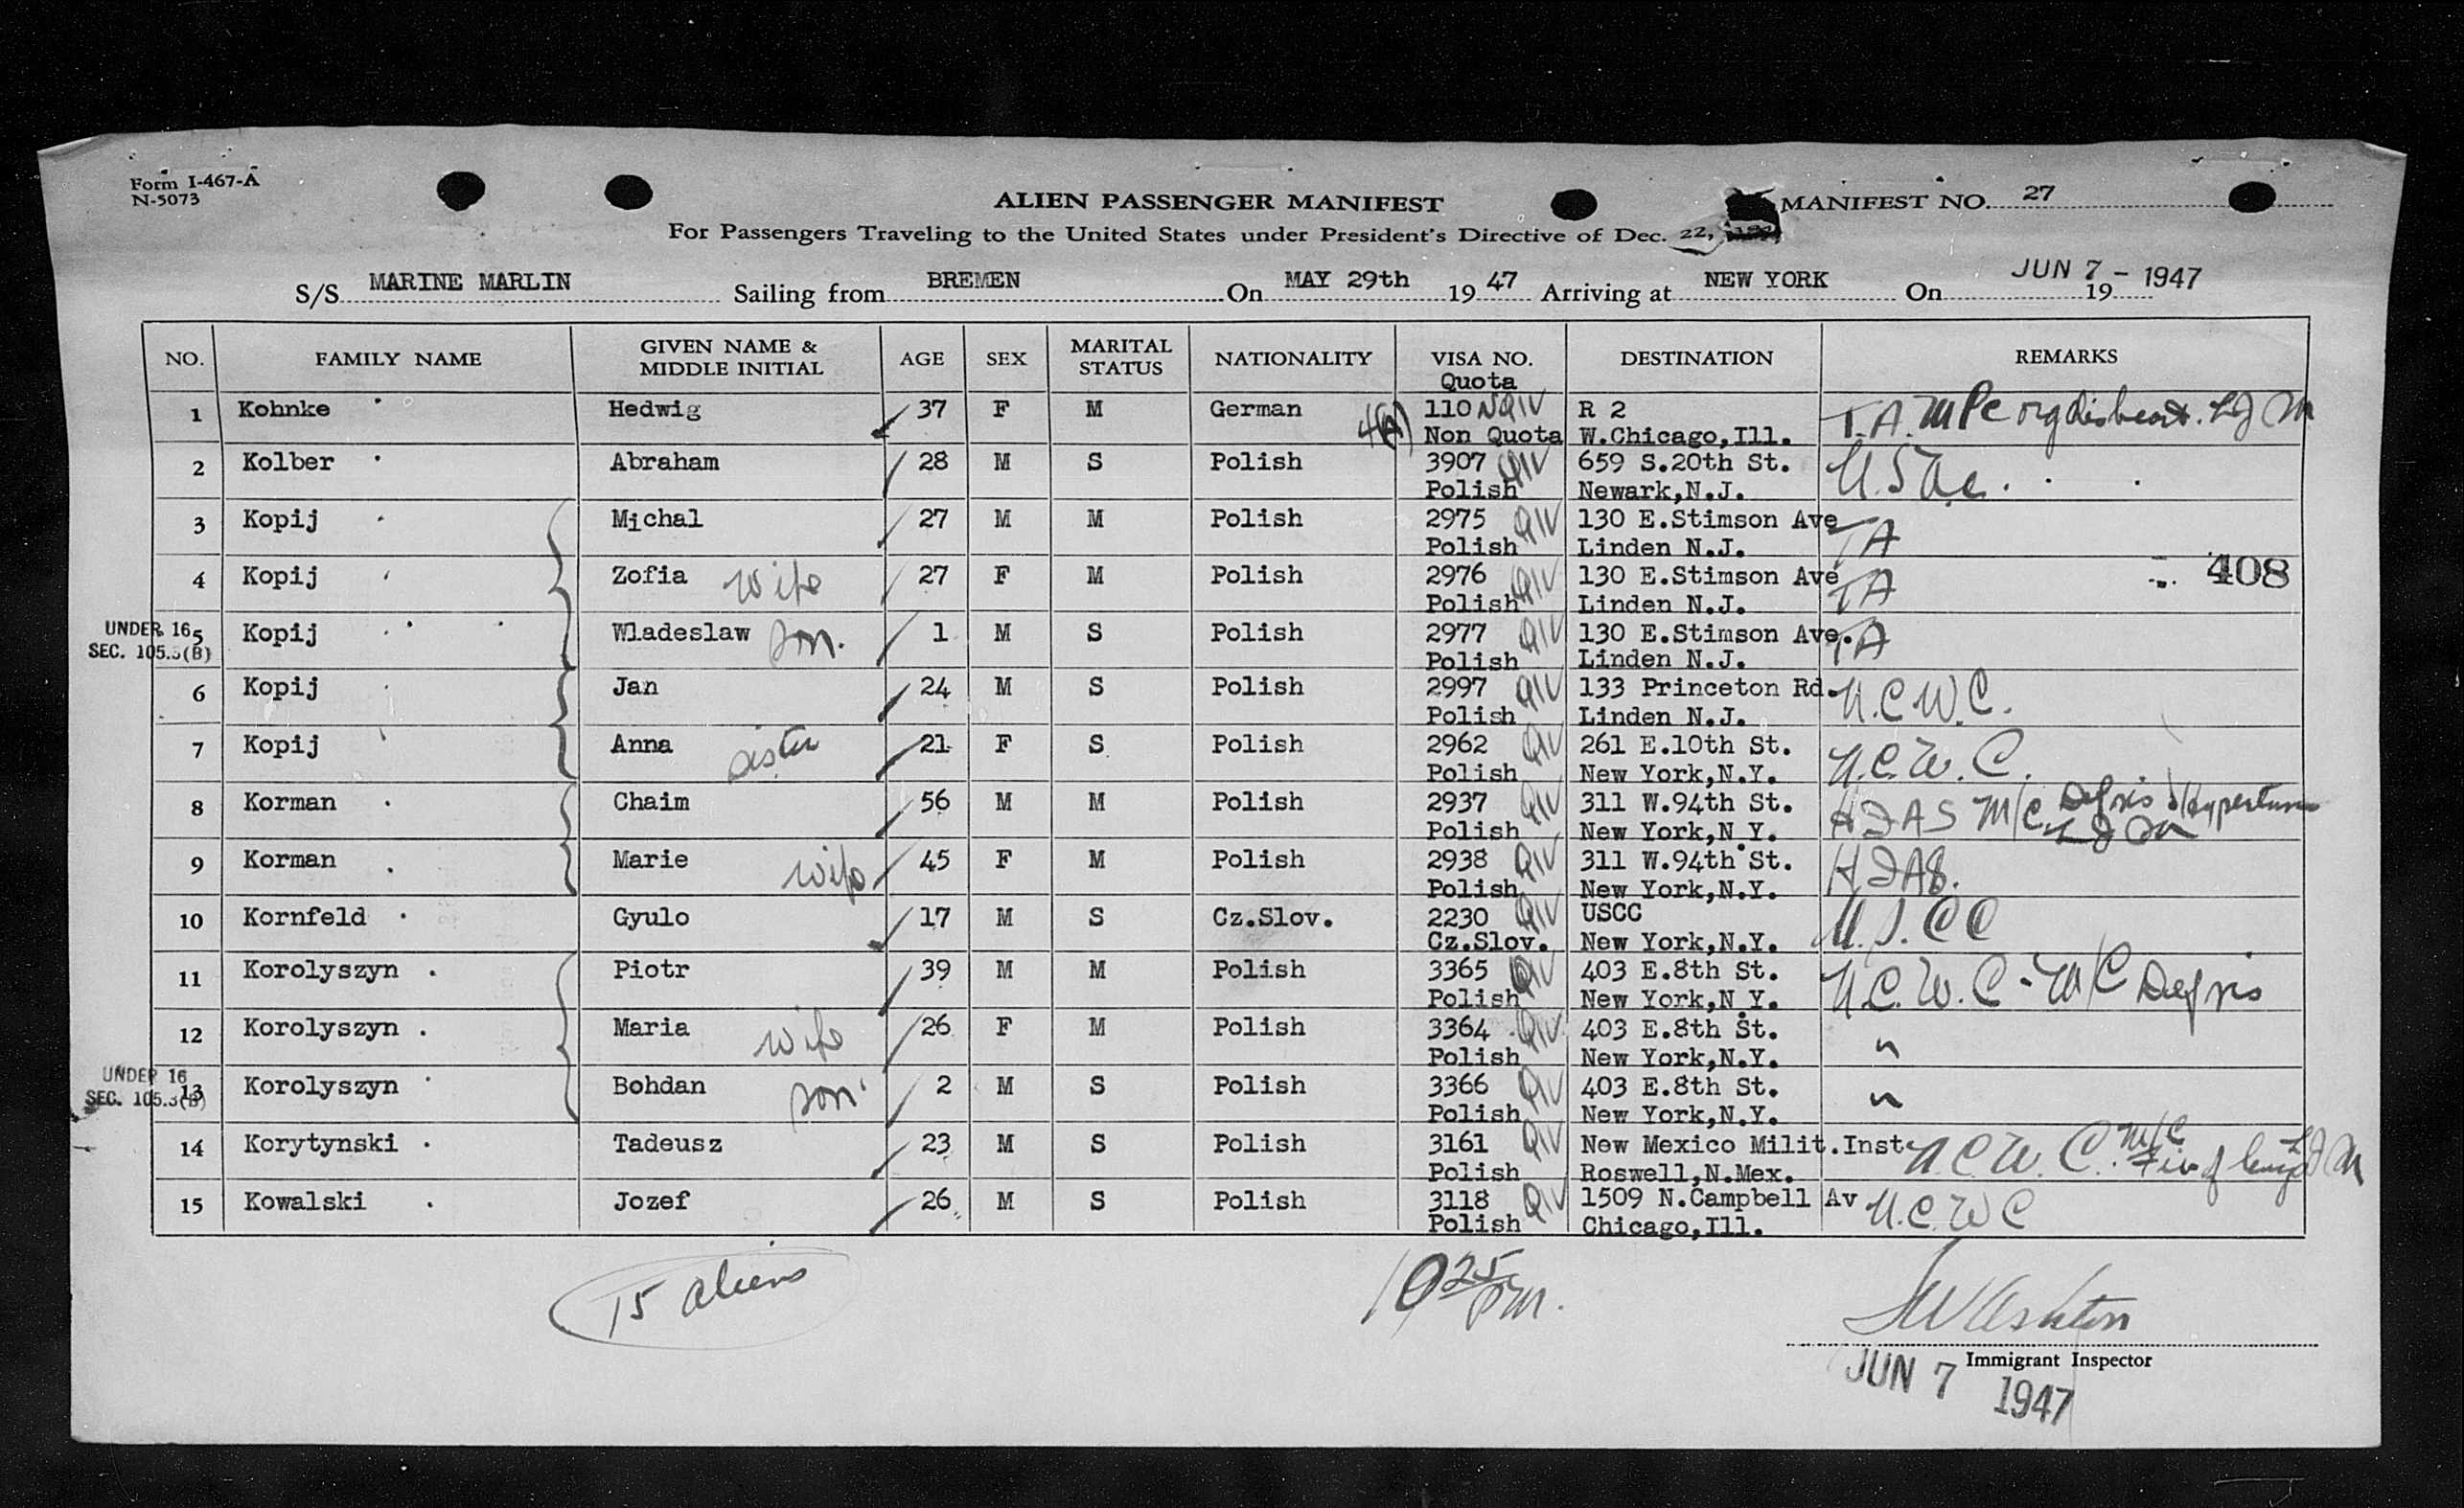 Form I-467-A
N-5073
ALIEN PASSENGER MANIFEST
MANIFEST NO. 27
For Passengers Traveling to the United States under President's Directive of Dec. 22,
S/S MARINE MARLIN Sailing from BREMEN On MAY 29th 19 47 Arriving at NEW YORK On JUN 7 - 1947 19
NO. FAMILY NAME GIVEN NAME & MIDDLE INITIAL AGE SEX MARITAL STATUS NATIONALITY VISA NO. DESTINATION REMARKS
Quota
1 Kohnke Hedwig 37 F M German 110 NQIV R 2 T.A.
4(A) Non Quota W.Chicago,Ill.
2 Kolber Abraham 28 M S Polish 3907 QIV 659 S.20th St.
Polish Newark,N.J.
3 Kopij Michal 27 M M Polish 2975 QIV 130 E.Stimson Ave TA
Polish Linden N.J.
4 Kopij Zofia wife 27 F M Polish 2976 QIV 130 E.Stimson Ave TA 408
Polish Linden N.J.
UNDER 16 5 Kopij Wladeslaw son. 1 M S Polish 2977 QIV 130 E.Stimson Ave. TA
SEC. 105.3(B) Polish Linden N.J.
6 Kopij Jan 24 M S Polish 2997 QIV 133 Princeton Rd. N.C.W.C.
Polish Linden N.J.
7 Kopij Anna sister 21 F S Polish 2962 QIV 261 E.10th St. N.C.W.C.
Polish New York,N.Y.
8 Korman Chaim 56 M M Polish 2937 QIV 311 W.94th St. HIAS M/C
Polish New York,N.Y.
9 Korman Marie wife 45 F M Polish 2938 QIV 311 W.94th St. HIAS.
Polish New York,N.Y.
10 Kornfeld Gyulo 17 M S Cz.Slov. 2230 QIV USCC U.S.CC
Cz.Slov. New York,N.Y.
11 Korolyszyn Piotr 39 M M Polish 3365 QIV 403 E.8th St. N.C.W.C - M/C Def vis
Polish New York,N.Y.
12 Korolyszyn Maria wife 26 F M Polish 3364 QIV 403 E.8th St. "
Polish New York,N.Y.
UNDER 16 13 Korolyszyn Bohdan son 2 M S Polish 3366 QIV 403 E.8th St. "
SEC. 105.3(B) Polish New York,N.Y.
14 Korytynski Tadeusz 23 M S Polish 3161 QIV New Mexico Milit.Inst N.C.W.C. M/C
Polish Roswell,N.Mex.
15 Kowalski Jozef 26 M S Polish 3118 QIV 1509 N.Campbell Av N.C.W C
Polish Chicago,Ill.
15 aliens
10 25 PM.
Immigrant Inspector
JUN 7 1947